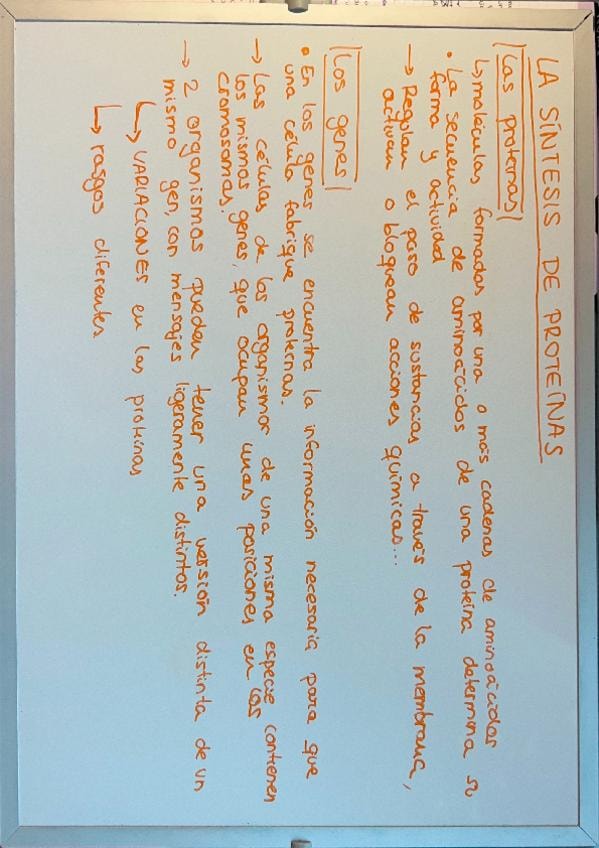 LA SÍNTESIS DE PROTEÍNAS
Las proteínas
↳ moléculas formadas por una o más cadenas de aminoácidos
• La secuencia de aminoácidos de una proteína determina su
forma y actividad
→ Regulan el paso de sustancias a través de la membrana,
activan o bloquean acciones químicas...
Los genes
• En los genes se encuentra la información necesaria para que
una célula fabrique proteínas.
→ Las células de los organismos de una misma especie contienen
los mismos genes, que ocupan unas posiciones en los
cromosomas.
→ 2 organismos pueden tener una versión distinta de un
mismo gen, con mensajes ligeramente distintos.
↳ VARIACIONES en las proteínas
↳ rasgos diferentes